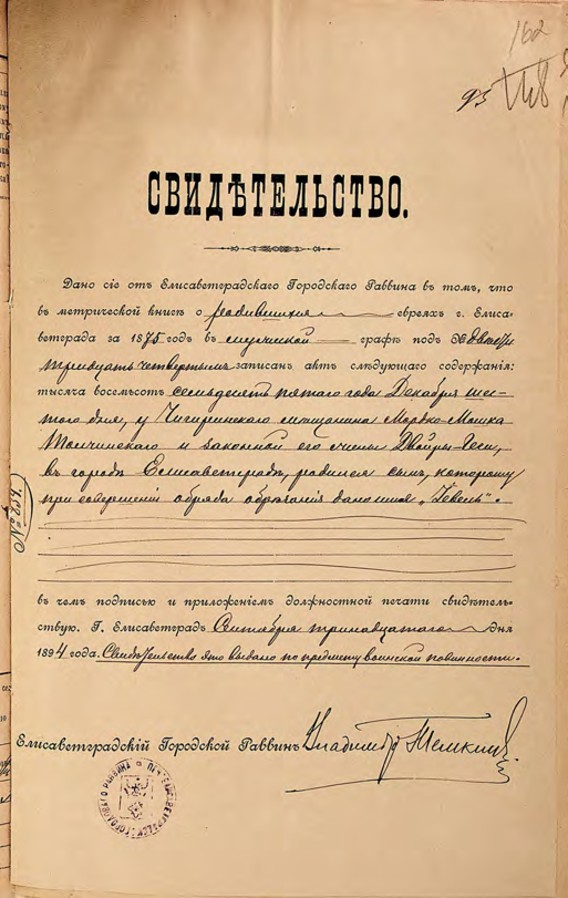 162
93
СВИДѢТЕЛЬСТВО.
Дано сіе отъ Елисаветградскаго Городскаго Раввина въ томъ, что
въ метрической книгѣ о родившихся евреяхъ г. Елиса-
ветграда за 1875 годъ въ мужской графѣ подъ № двѣсти
тридцать четвертымъ записанъ актъ слѣдующаго содержанія:
тысяча восемьсотъ семьдесятъ пятаго года Декабря шес-
таго дня, у Чигиринскаго мѣщанина Мордко-Мошка
Толчинскаго и законной его жены Двойры-Геси,
въ городѣ Елисаветградѣ, родился сынъ, которому
при совершеніи обряда обрѣзанія дано имя „Гевель".
№ 234.
въ чемъ подписью и приложеніемъ должностной печати свидѣтель-
ствую. Г. Елисаветградъ Сентября тринадцатаго дня
1894 года. Свидѣтельство это выдано по предмету воинской повинности.
Елисаветградскій Городской Раввинъ Владиміръ Темкинъ